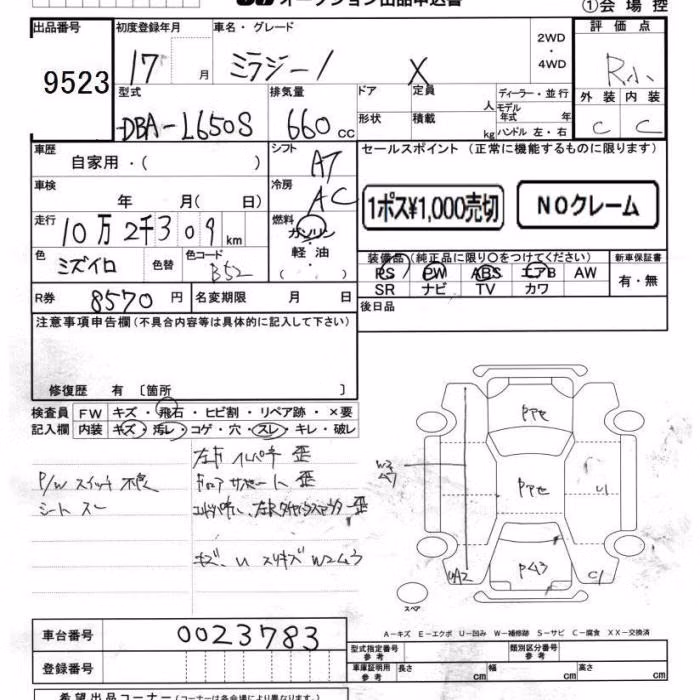 オークション出品申込書
①会場控
出品番号
9523
初度登録年月
17 月
車名・グレード
ミラジーノ X
2WD
・
4WD
評価点
R小
外装 内装
C C
型式
DBA-L650S
排気量
660 cc
ドア
定員
人
形状
積載
kg
ディーラー・並行
モデル年式 年
ハンドル 左・右
車歴
自家用・( )
シフト
AT
セールスポイント (正常に機能するものに限ります)
1ポス¥1,000売切
NOクレーム
車検
年 月( 日)
冷房
AC
走行
10万2千309 km
燃料
ガソリン
・
軽油
( )
色
ミズイロ
色替
色コード
B52
装備品(純正品に限り○をつけてください)
PS PW ABS エアB AW
SR ナビ TV カワ
新車保証書
有・無
R券
8570 円
名変期限 月 日
後日品
注意事項申告欄(不具合内容等は具体的に記入して下さい)
修復歴 有 〔箇所 〕
検査員記入欄
FW キズ・飛石・ヒビ割・リペア跡・×要
内装 キズ・汚レ・コゲ・穴・スレ・キレ・破レ
P/W スイッチ不良
シート スレ
左F インパネ 歪
F コアサポート 歪
キズ、U スリキズ W2ムラ
Pアセ
Pアセ
W3
ムラ
U1
Pムラ3
UA2
C1
スペア
A-キズ E-エクボ U-凹み W-補修跡 S-サビ C-腐食 XX-交換済
車台番号
0023783
登録番号
型式指定番号
参考
類別区分番号
参考
車庫証明用
参考
長さ cm
幅 cm
高さ cm
希望出品コーナー(コーナーは各会場により異なります)